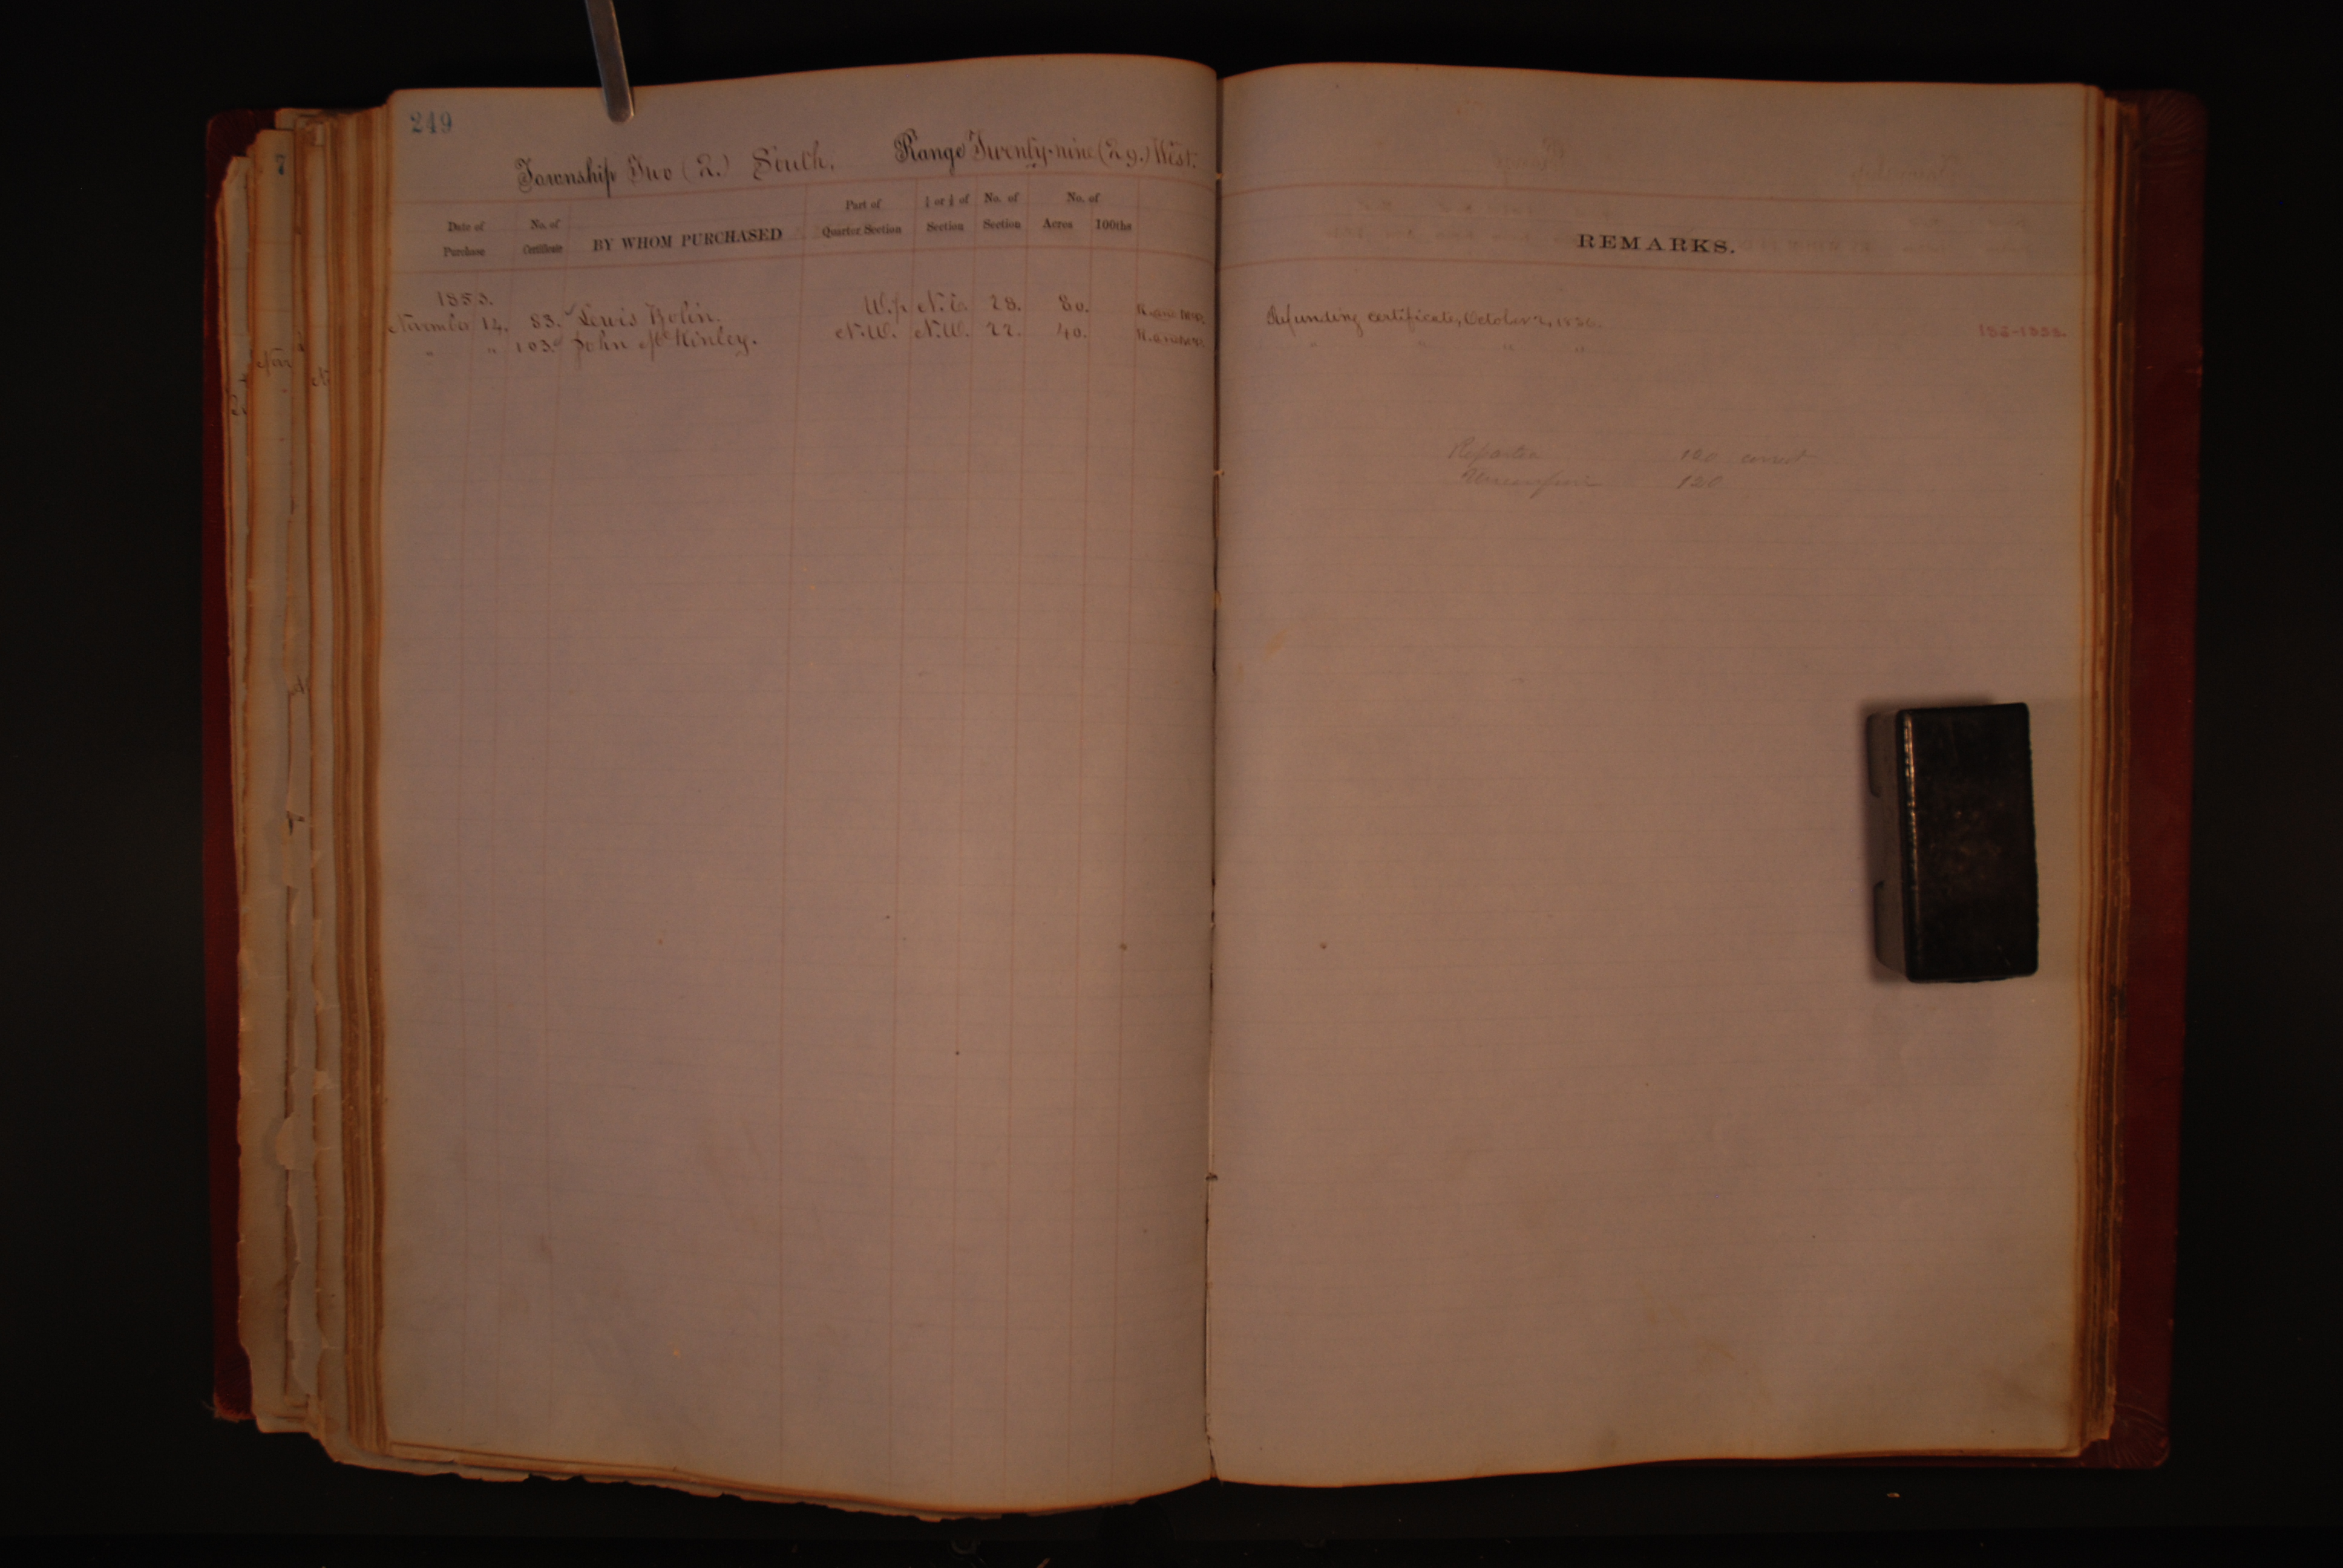 249
7
Township Two (2.) South. Range Twenty-nine (29.) West.
Date of Purchase No. of Certificate BY WHOM PURCHASED Part of Quarter Section ½ or ¼ of Section No. of Section No. of Acres 100ths
REMARKS.
1853.
November 14. 83. Lewis Bolin. W.p N.E. 28. 80. Refunding certificate, October 2, 1856.
" " 103. John McKinley. N.W. N.W. 22. 40. " " " "
Reported 120 correct
120